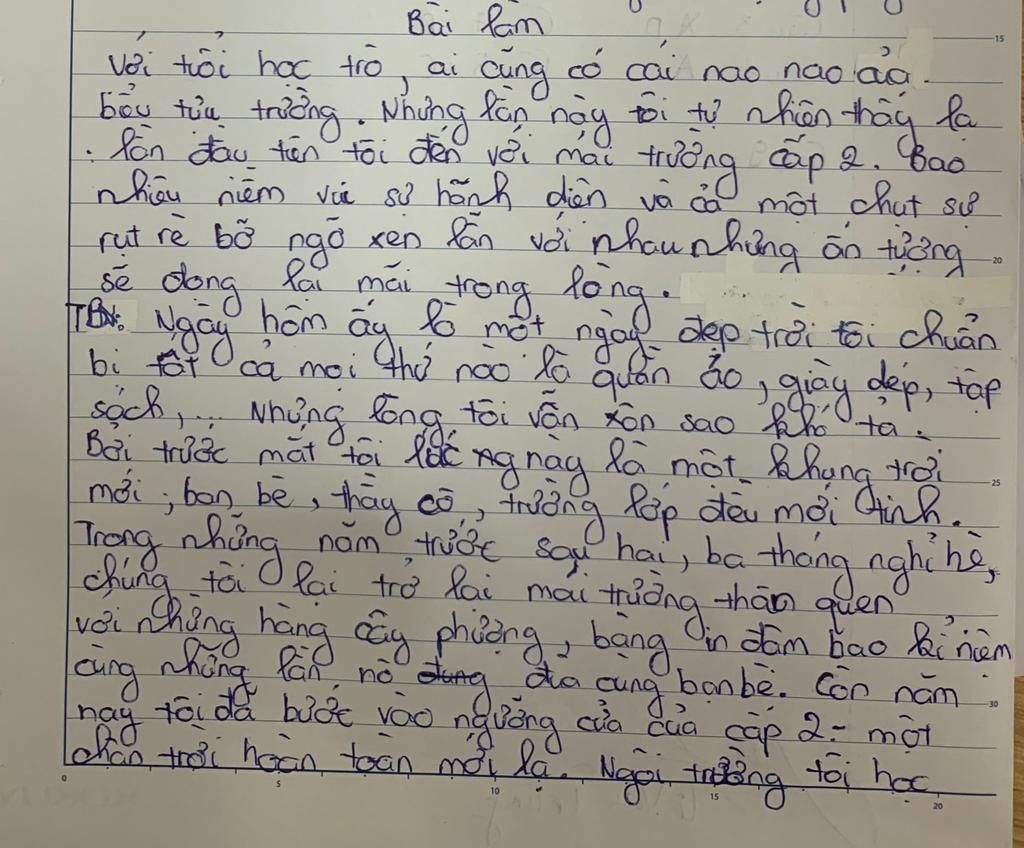 Bài làm
Với tuổi học trò, ai cũng có cái nao nao của
bổi tựu trường. Nhưng lần này tôi tự nhiên thấy lạ
. lần đầu tiên tôi đến với mái trường cấp 2. Bao
nhiêu niềm vui sự hãnh diện và cả một chut sự
rụt rè bỡ ngỡ xen lẫn với nhau nhưng ấn tượng
sẽ đọng lại mãi trong lòng.
Ngày hôm ấy là một ngày đẹp trời tôi chuẩn
bị tất cả mọi thứ nào là quần áo, giày dép, tập
sách,... Nhưng lòng tôi vẫn xôn sao khó tả.
Bởi trước mắt tôi lúc này là một khung trời
mới, bạn bè, thầy cô, trường lớp đều mới tinh.
Trong những năm trước sau hai, ba tháng nghỉ hè,
chúng tôi lại trở lại mái trường thân quen
với những hàng cây phượng, bàng in đậm bao kỉ niệm
cùng những lần nô đùa cùng bạn bè. Còn năm
nay tôi đã bước vào ngưỡng cửa của cấp 2 - một
chân trời hoàn toàn mới lạ. Ngôi trường tôi học
15
20
25
30
0 5 10 15 20